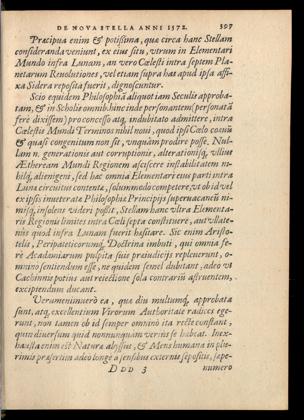 DE NOVA STELLA ANNI 1572. 397
Præcipua enim & potißima, quæ circa hanc Stellam
consideranda veniunt, ex eius situ, vtrum in Elementari
Mundo infra Lunam, an vero Cœlesti intra septem Pla-
netarum Reuolutiones, vel etiam supra has apud ipsa affi-
xa Sidera reposita fuerit, dignoscuntur.
Scio equidem Philosophiâ aliquot iam Seculis approba-
tam, & in Scholis omnib. hinc inde personantem (personatâ
ferè dixissem) pro concesso atq, indubitato admittere, intra
Cœlestis Mundi Terminos nihil noui, quod ipsi Cœlo coæuū
& quasi congenitum non sit, vnquàm prodire posse. Nul-
lam n. generationis aut corruptionis, alterationisq, vllius
Æthereum Mundi Regionem asciscere instabilitatem ni-
hilq, alienigeni, sed hæc omnia Elementari eius parti intra
Lunæ circuitus contentæ, solummodo competere, vt ob id vel
ex ipsis inueteratæ Philosophiæ Principijs superuacaneū ni-
misq, insolens videri possit, Stellam hanc vltra Elementa-
ris Regionis limites intra Cœli septa constituere, aut vllate-
nus quod infra Lunam fuerit hæsitare. Sic enim Aristo-
telis, Peripateticorumq, Doctrina imbuti, qui omnia fe-
rè Academiarum pulpita suis præiudicijs repleuerunt, o-
mnino sentiendum esse, ne quidem semel dubitant, adeo vt
Cachinnis potius aut reiectione sola contrariū asseruentem,
excipiendum ducant.
Verumenimuerò ea, quæ diu multumq, approbata
sunt, atq, excellentium Virorum Authoritate radices ege-
runt, non tamen ob id semper omninò ita rectè constant,
quin diuersum quid nonnunquam verius se habeat. Inex-
hausta enim est Naturæ abyssus, & Mens humana in plu-
rimis præsertim adeo longè à sensibus externis sepositis, sæpe-
D D D 3 numero